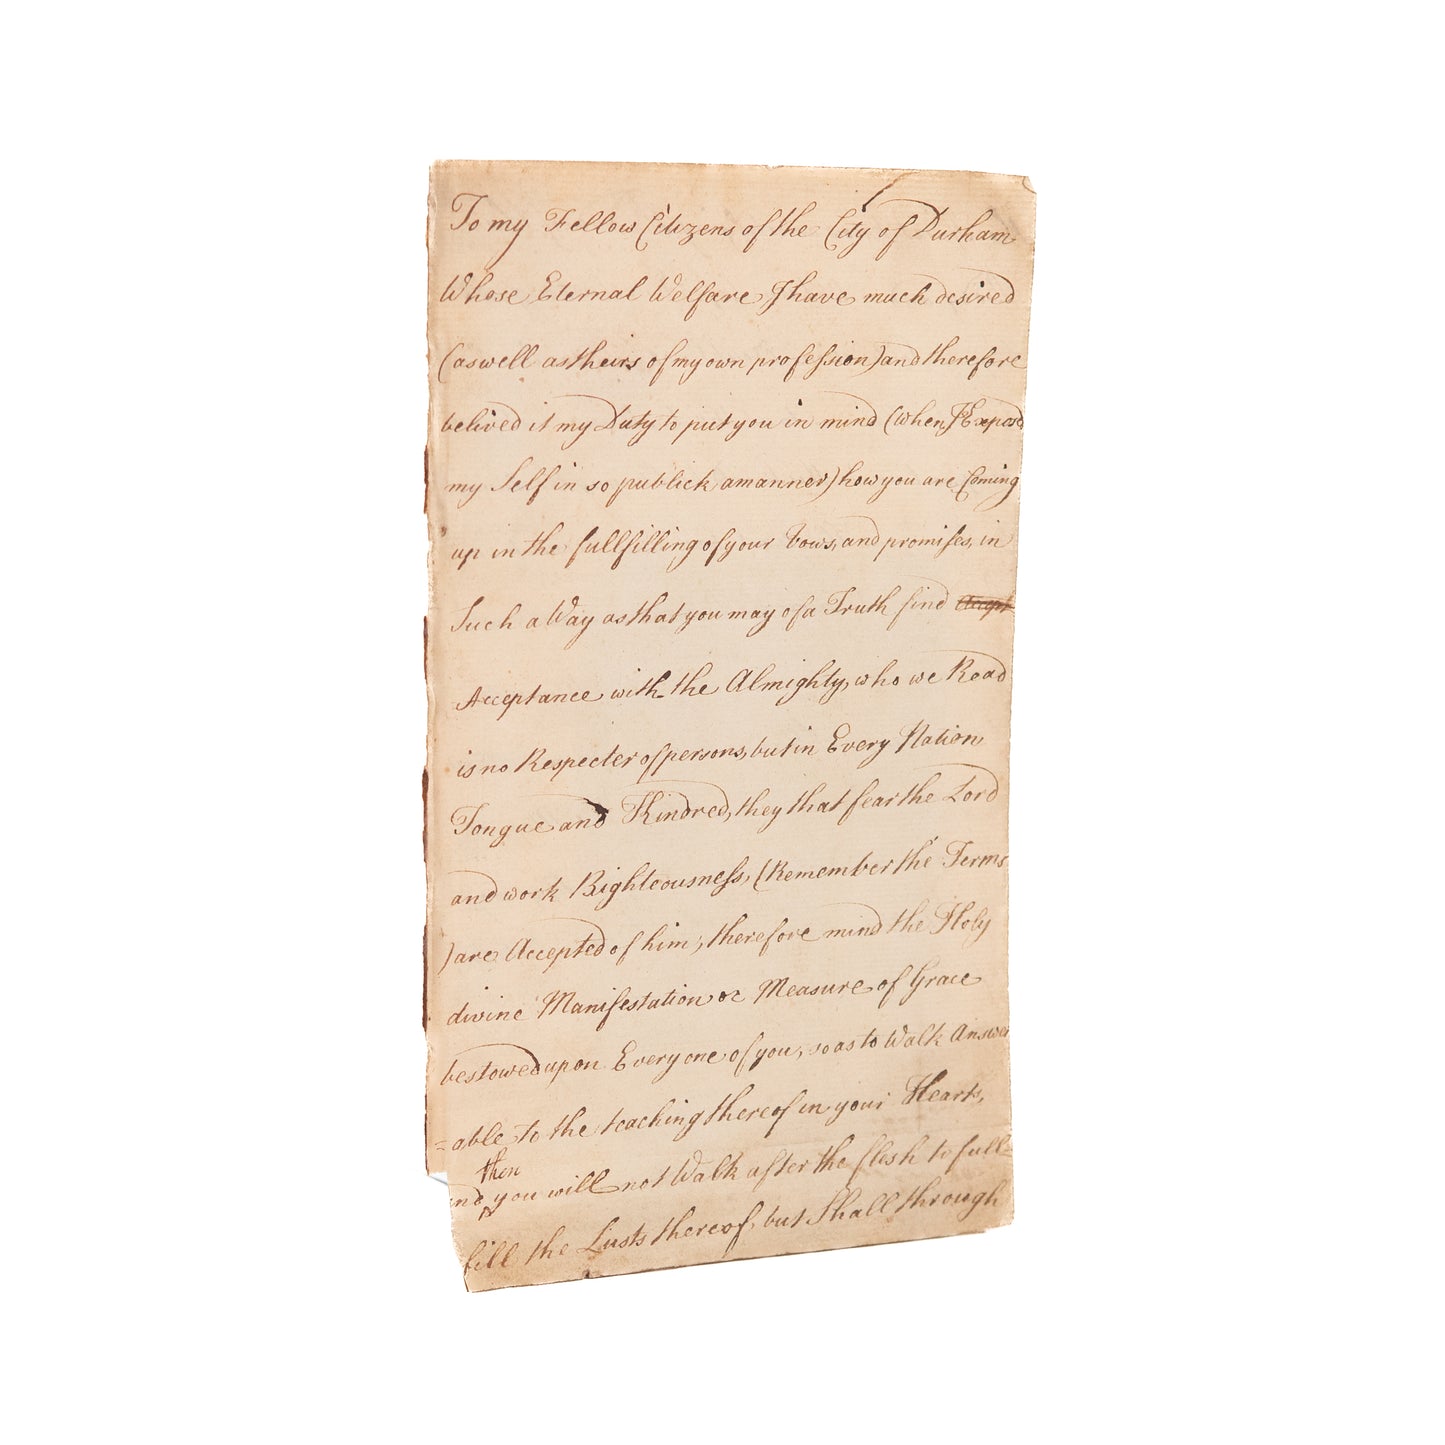 To my Fellow Citizens of the City of Durham
Whose Eternal Welfare I have much desired
(as well as theirs of my own profession) and therefore
belived it my Duty to put you in mind (when I Exposd
my Self in so publick a manner) how you are Coming
up in the fullfilling of your Vows, and promises, in
Such a Way as that you may of a Truth find Accept
Acceptance with the Almighty, who we Read
is no Respecter of persons, but in Every Nation
Tongue and Kindred, they that fear the Lord
and work Righteousness, (Remember the Terms
) are Accepted of him; therefore mind the Holy
divine Manifestation or Measure of Grace
bestowed upon Every one of you, so as to Walk Answer
=able to the teaching thereof in your Hearts,
then
and you will not Walk after the flesh to full=
fill the Lusts thereof, but Shall through